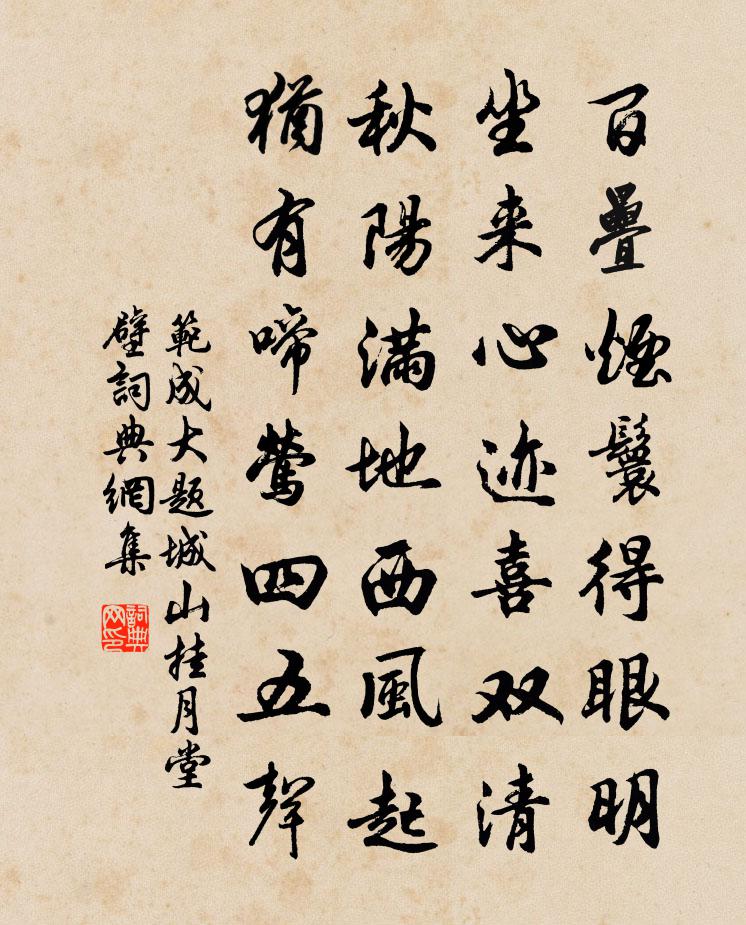 百疊煙鬟得眼明
坐来心迹喜双清
秋陽滿地西風起
猶有啼鶯四五聲
範成大題城山桂月堂
壁詞典網集
詞典網印